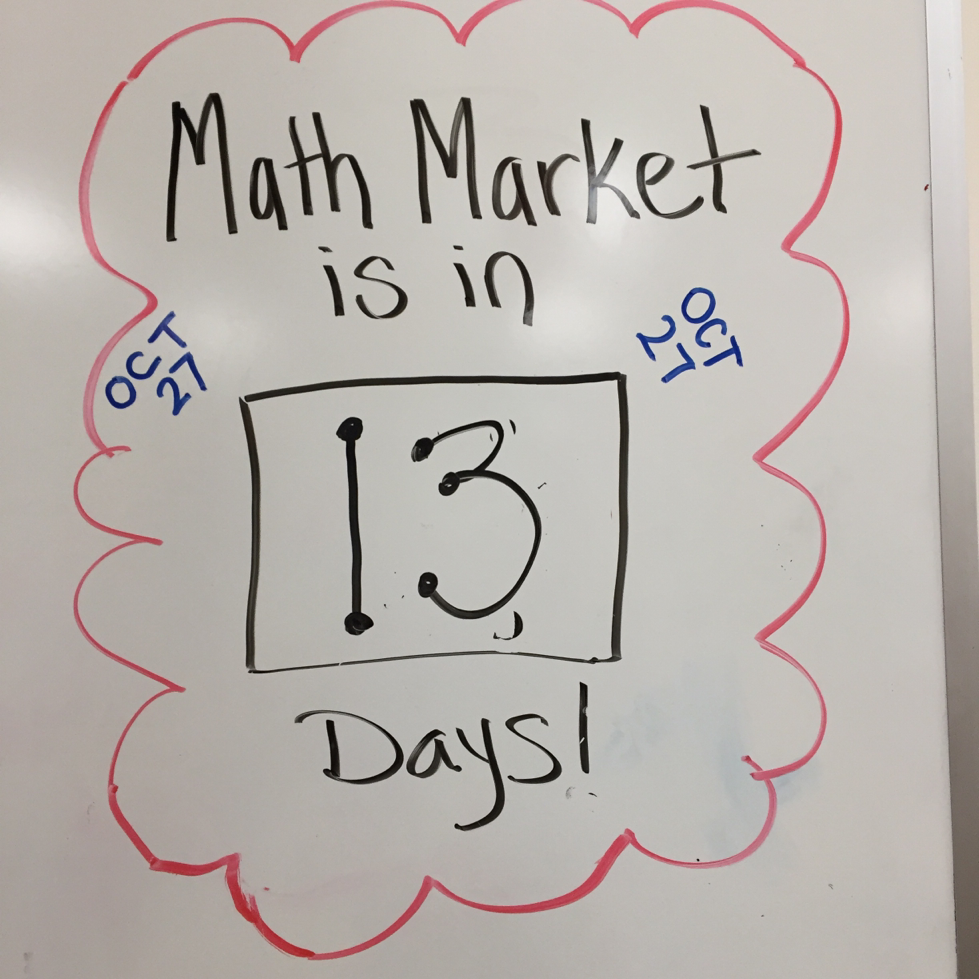 Math Market
is in
OCT
27
OCT
27
13
Days!